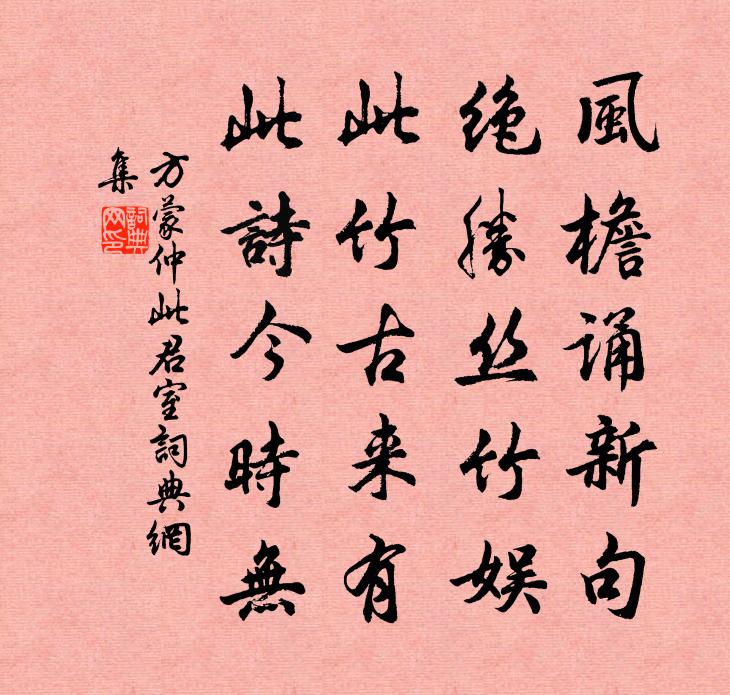 風檐诵新句
绝勝丝竹娱
此竹古来有
此詩今時無
方蒙仲此君室詞典網
集
詞典网印